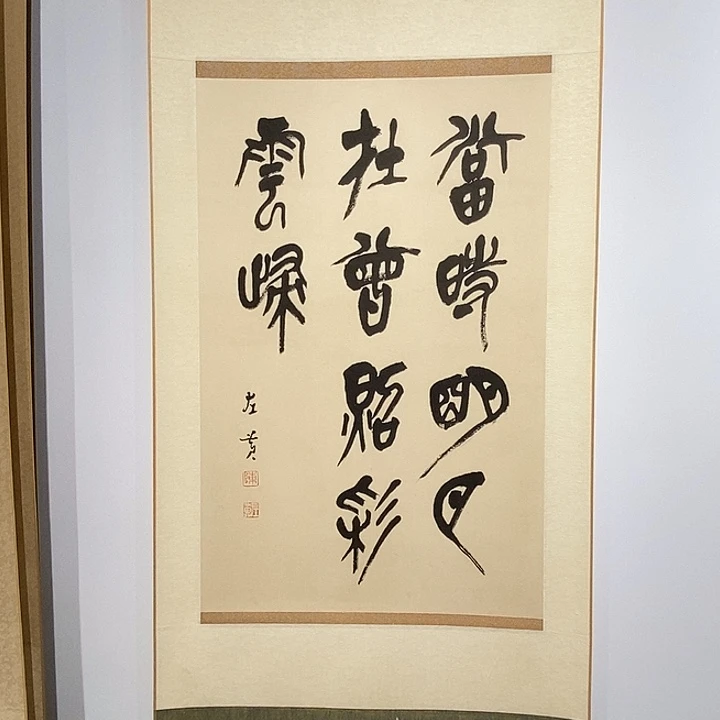 當時明月
在曾照彩
雲歸
左